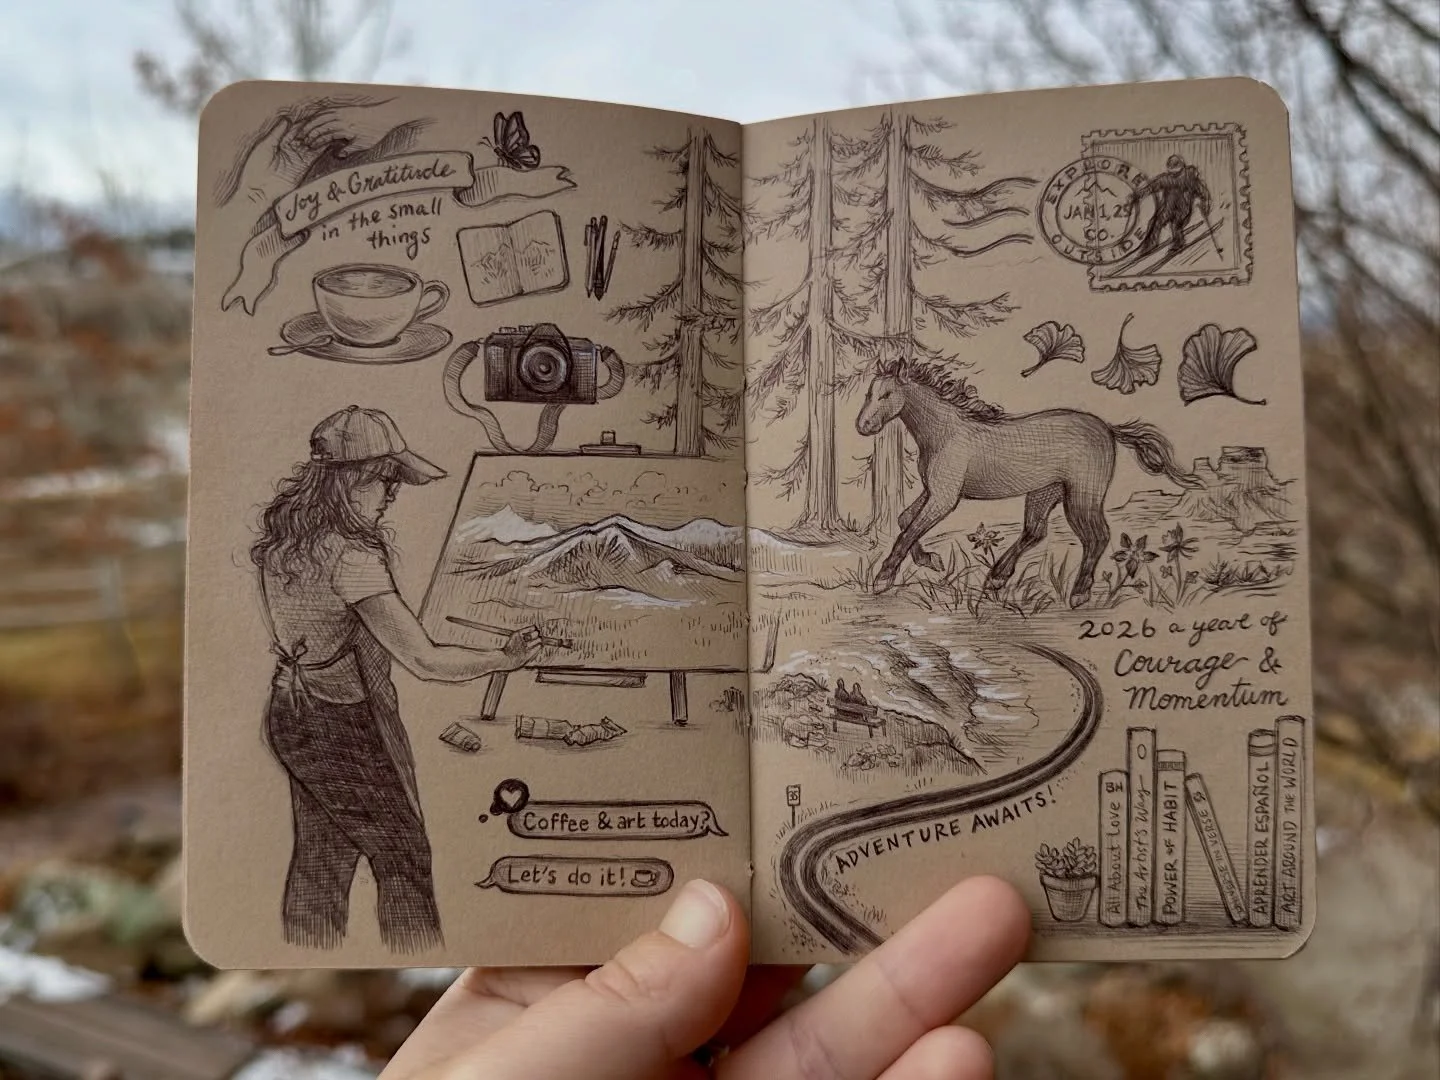 Joy & Gratitude
in the small
things
EXPLORE
JAN 1, 25
CO.
OUTSIDE
2026 a year of
Courage &
Momentum
35
ADVENTURE AWAITS!
Coffee & art today?
Let's do it!
BH
All About Love
The Artist's Way
POWER of HABIT
VERSE
APRENDER ESPAÑOL
ART AROUND THE WORLD